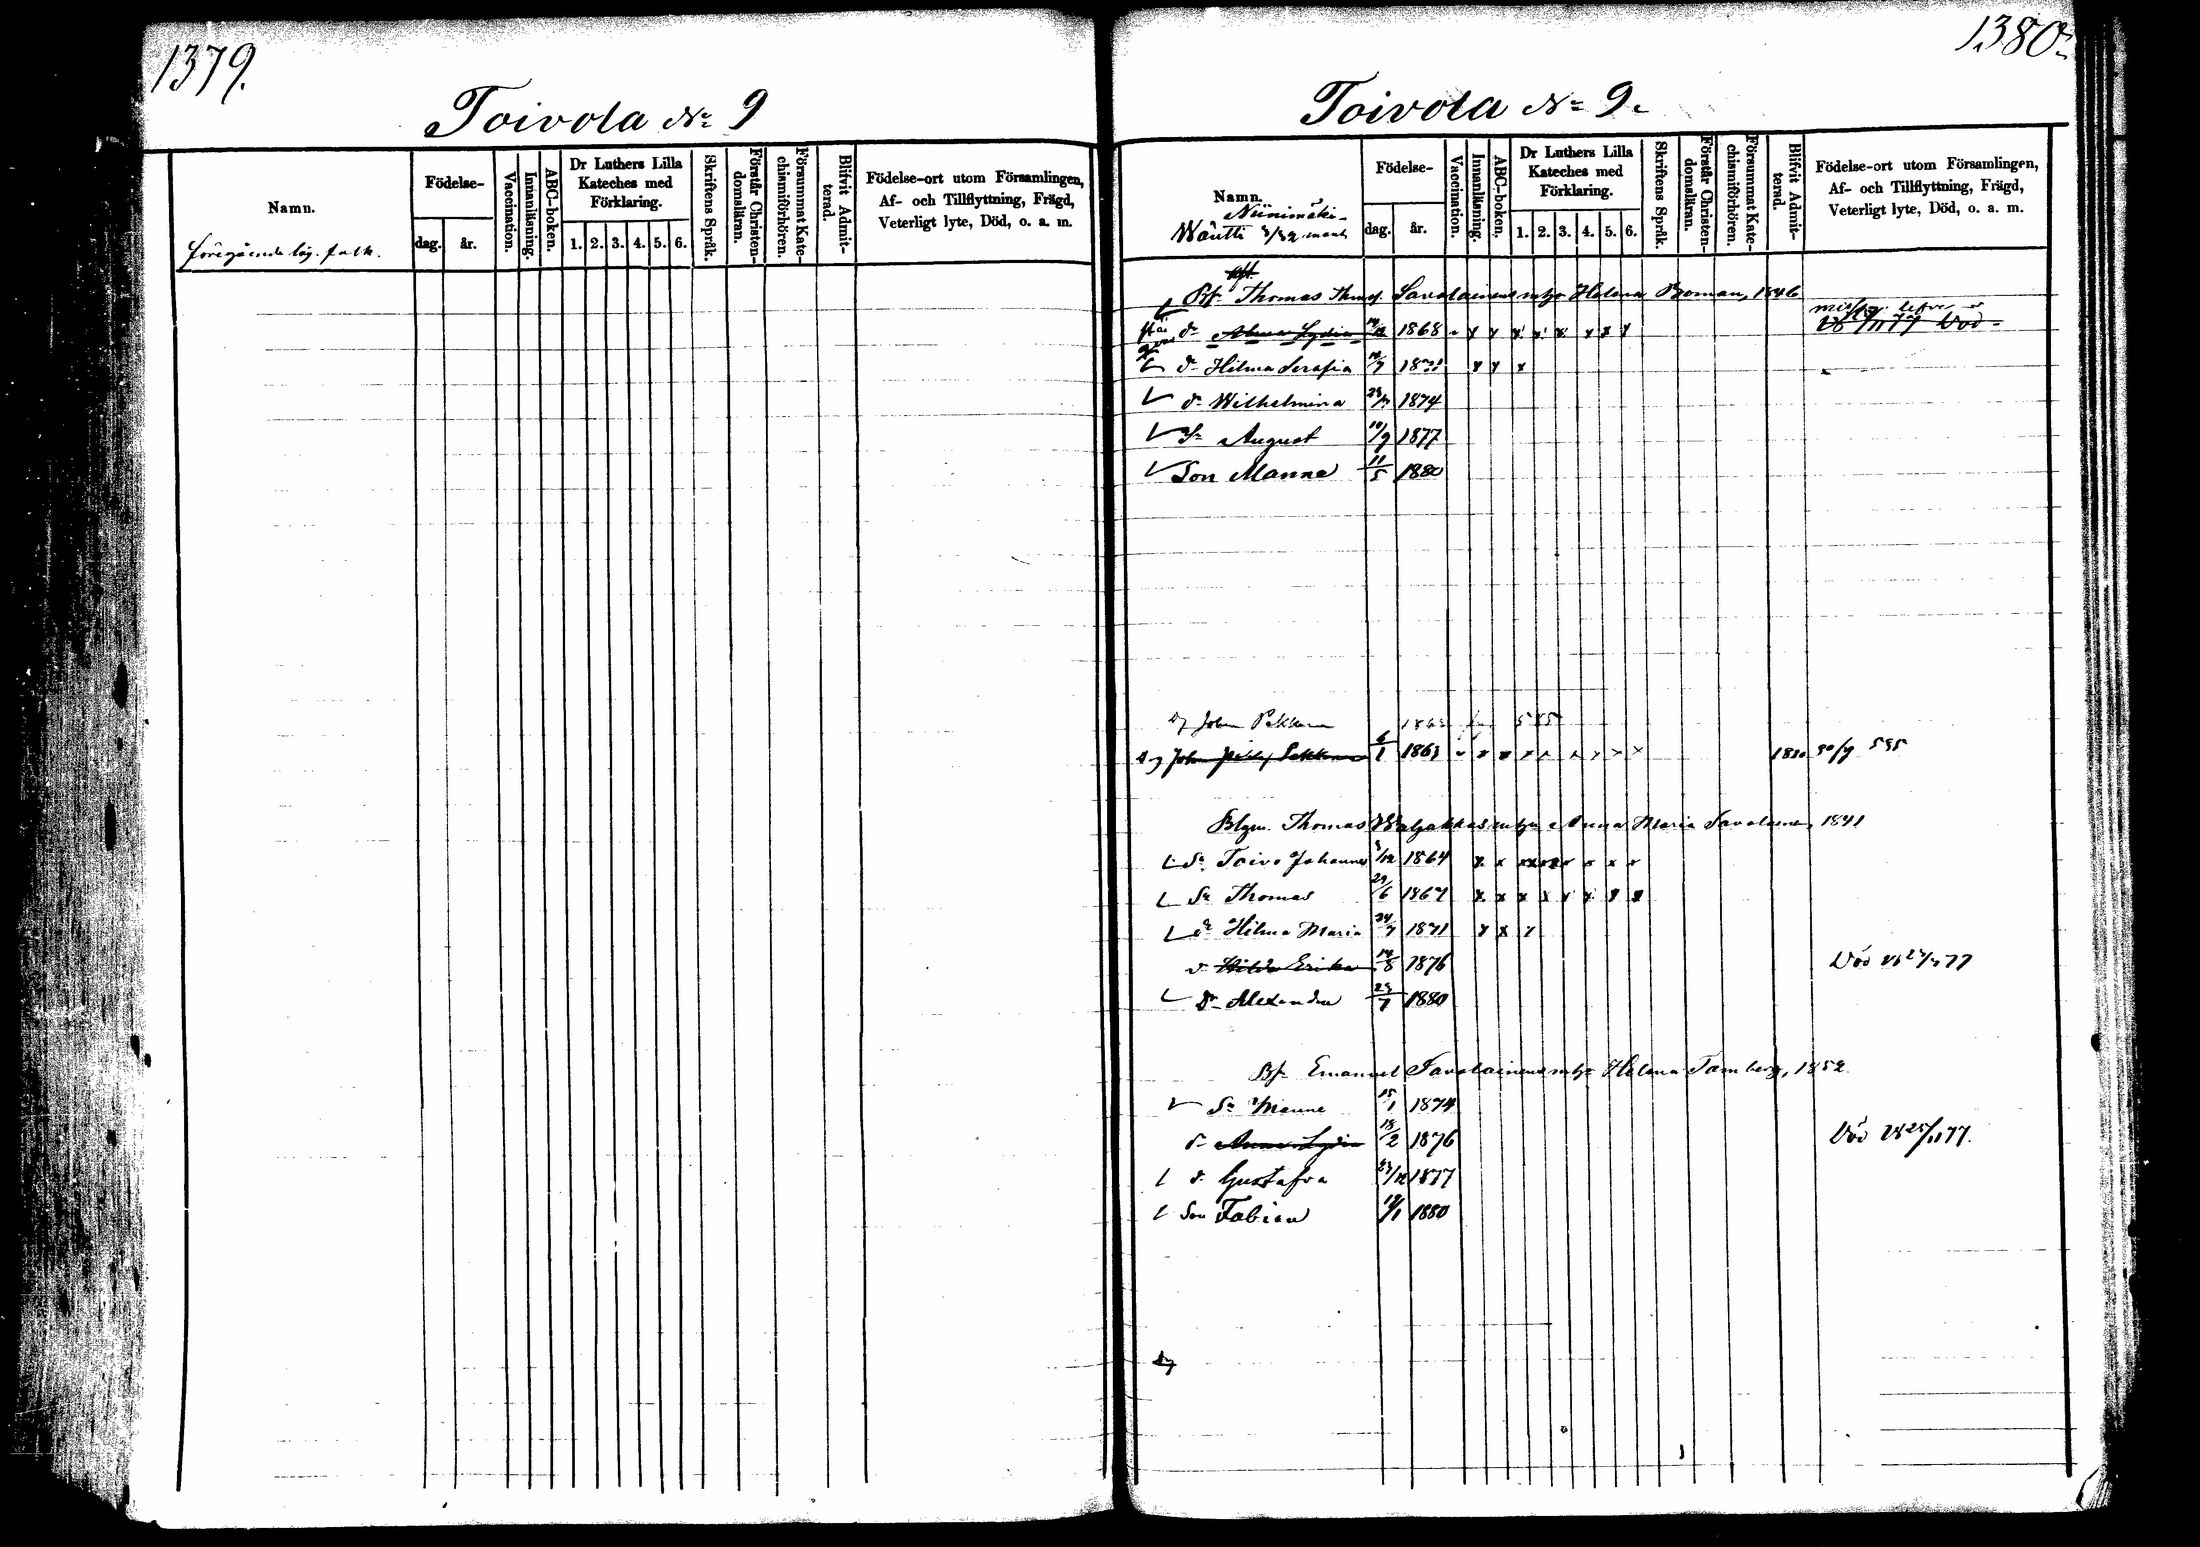 1379.
Toivola No 9
Namn.
Födelse-
dag. år.
Vaccination.
Innanläsning.
ABC-boken.
Dr Luthers Lilla Kateches med Förklaring.
1. 2. 3. 4. 5. 6.
Skriftens Språk.
Förstår Christen-domsläran.
Försummat Kate-chismiförhören.
Blifvit Admit-terad.
Födelse-ort utom Församlingen,
Af- och Tillflyttning, Frägd,
Veterligt lyte, Död, o. a. m.
föregående
1380.
Toivola No 9.
Namn.
Niinimäki
Wäutti 3/32
Födelse-
dag. år.
Vaccination.
Innanläsning.
ABC-boken.
Dr Luthers Lilla Kateches med Förklaring.
1. 2. 3. 4. 5. 6.
Skriftens Språk.
Förstår Christen-domsläran.
Försummat Kate-chismiförhören.
Blifvit Admit-terad.
Födelse-ort utom Församlingen,
Af- och Tillflyttning, Frägd,
Veterligt lyte, Död, o. a. m.
Bf. Thomas Savolainens Helena Boman, 1846
dr Alma Lydia 1868 x x x x x x x x
dr Hilma Serafia 1871 x x x
dr Wilhelmina 1874
August 10/9 1877
Son Manne 11/5 1880
John Pekkanen 585
John Pekkanen 6/1 1863 1880 30/9 585
Thomas Anna Maria Savolainen, 1841
Sn Toivo Johannes 1864
Sn Thomas 29/6 1867 x x x x x x x x
dr Hilma Maria 24/7 1871 x x x
Hilda Erika 14/8 1876 Död
Dr Alexandra 23/7 1880
Bf. Emanuel Savolainens Helena Tamberg, 1852
Sn Manne 15/1 1874
Anna Lydia 18/2 1876 Död 25/11 77.
d. Gustafva 1877
Son Fabian 1880